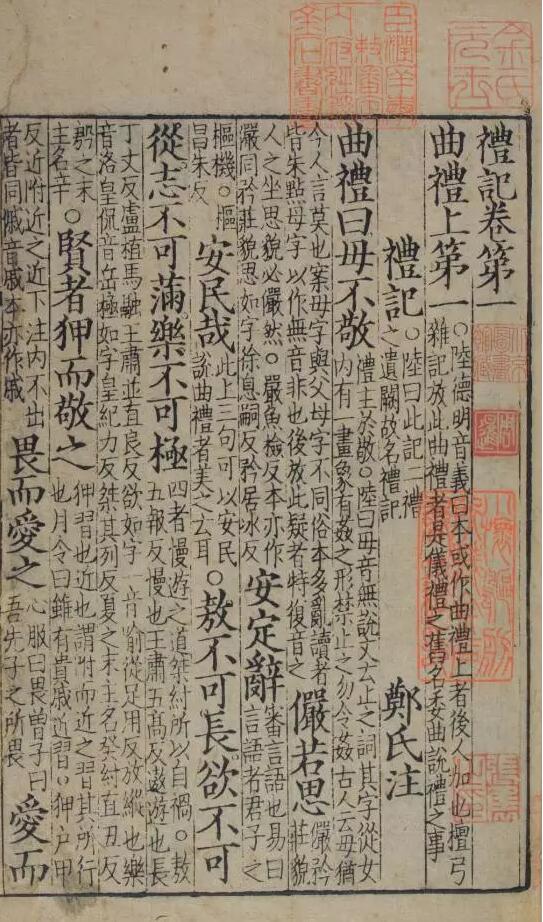 禮記卷第一
曲禮上第一
○陸德明音義曰本或作曲禮上者後人加也檀弓
雜記放此曲禮者是儀禮之舊名委曲說禮之事
禮記
○陸曰此記二禮
之遺闕故名禮記
鄭氏注
曲禮曰毋不敬
禮主於敬○陸曰毋音無說文云止之詞其字從女
內有一畫象有姦之形禁止之勿令姦古人云毋猶
今人言莫也案毋字與父母字不同俗本多亂讀者
皆朱點母字以作無音非也後放此疑者特復音之
儼若思
儼矜
莊貌
人之坐思貌必儼然○嚴魚檢反本亦作
嚴同矜莊貌思如字徐息嗣反矜居冰反
安定辭
審言語也易曰
言語者君子之
樞機○樞
昌朱反
安民哉
此上三句可以安民
說曲禮者美之云耳
○敖不可長欲不可
從志不可滿樂不可極
四者慢遊之道桀紂所以自禍○敖
五報反慢也王肅五高反遨遊也長
丁丈反盧植馬融王肅並直良反欲如字一音喻從足用反放縱也樂
音洛皇侃音岳極如字皇紀力反桀其列反夏之末王名癸紂直丑反
之末
主名辛
○賢者狎而敬之
狎習也近也謂附而近之習其所行
也月令曰雖有貴戚近習○狎戶甲
反近附近之近下注內不出
者皆同戚音戚本亦作戚
畏而愛之
心服曰畏曾子曰
吾先子之所畏
愛而